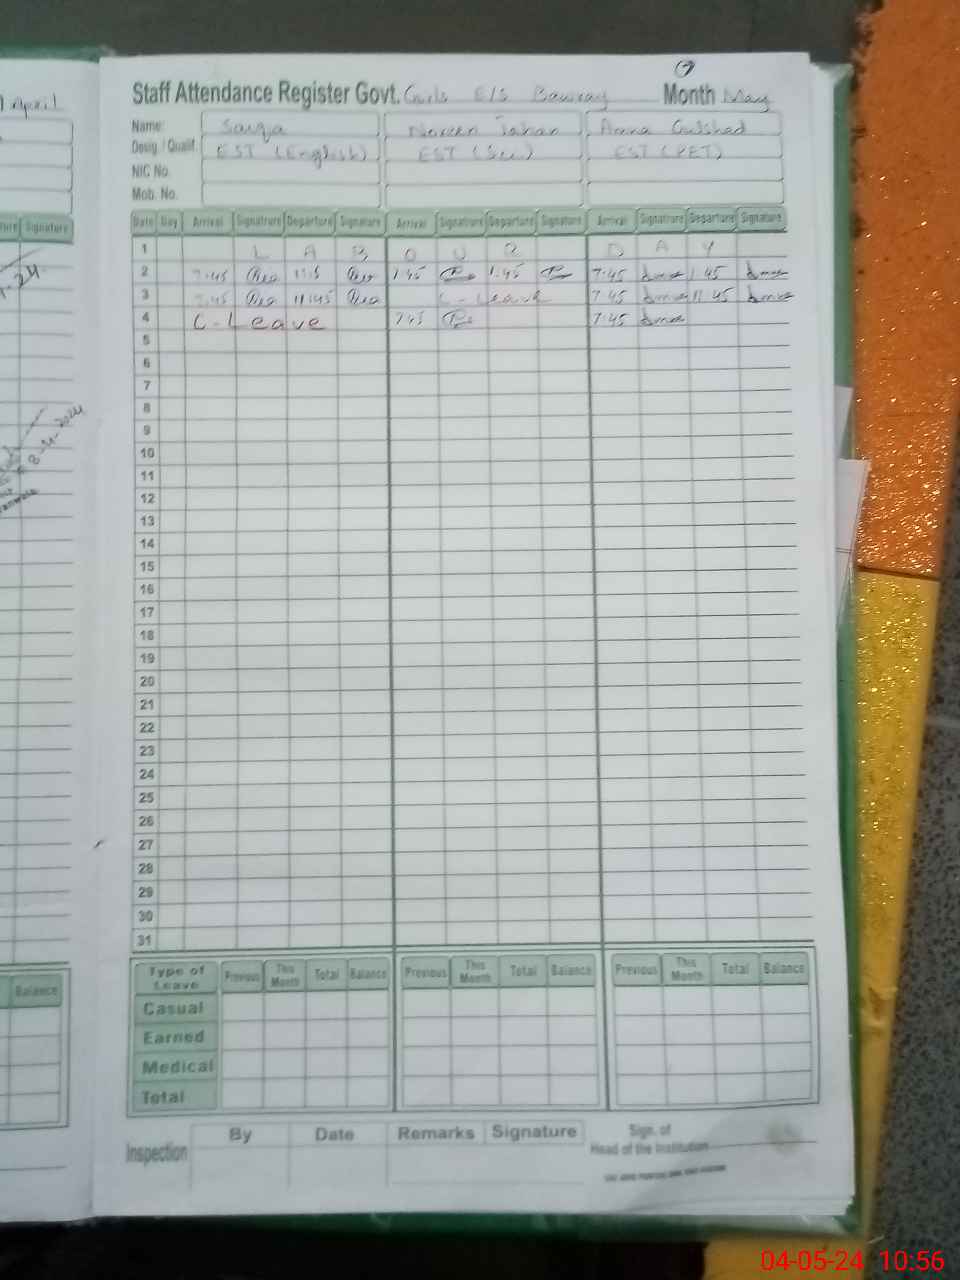 April
Staff Attendance Register Govt. Girls E/S Month May
Name: Noreen
Desig. / Qualif. EST (English) EST (Sci) EST (PET)
NIC No.
Mob. No.
Signature
Date Day Arrival Signature Departure Signature Arrival Signature Departure Signature Arrival Signature Departure Signature
1 L A B O U R D A Y
2 7:45 1:45 7:45 1:45
3 7:45 11:45 C-Leave 7:45 11:45
4 C-Leave 7:45 7:45
5
6
7
8
9
10
11
12
13
14
15
16
17
18
19
20
21
22
23
24
25
26
27
28
29
30
31
Balance
Type of Leave Previous This Month Total Balance Previous This Month Total Balance Previous This Month Total Balance
Casual
Earned
Medical
Total
Inspection By Date Remarks Signature Sign. of
Head of the Institution
04-05-24 10:56